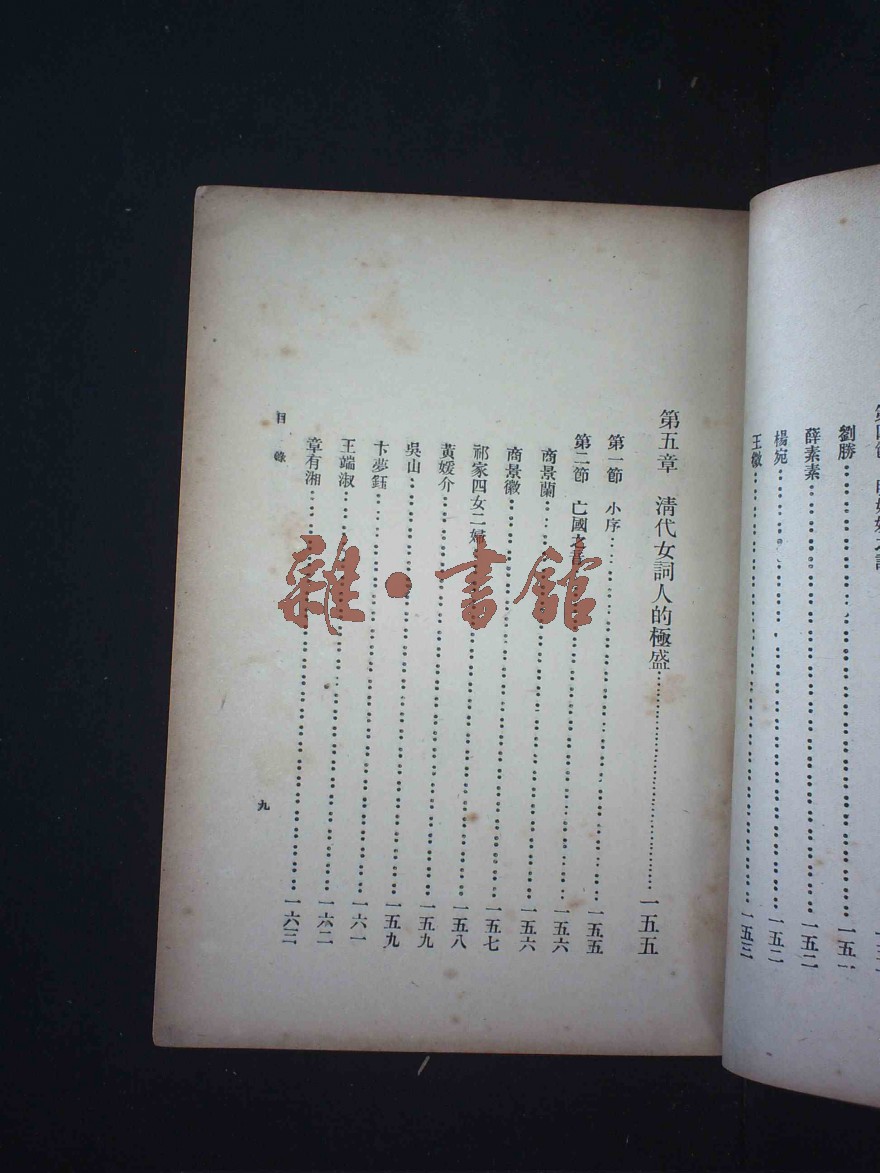 劉勝……一五一
薛素素……一五二
楊宛……一五二
王微……一五三
第五章 清代女詞人的極盛……一五五
第一節 小序……一五五
第二節 亡國之……一五六
商景蘭……一五六
商景徽……一五七
祁家四女二婦……一五八
黃媛介……一五九
吳山……一五九
卞夢鈺……一六一
王端淑……一六二
章有湘……一六三
目錄
九
雜·書館